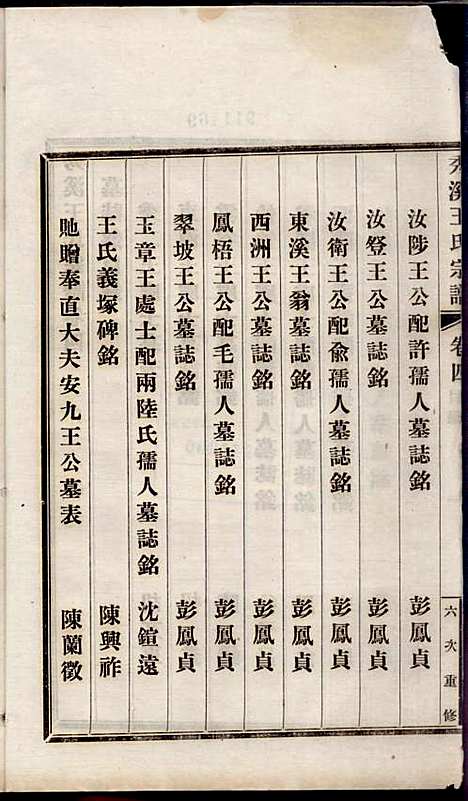 秀溪王氏宗譜 卷四 六次重修
汝陟王公配許孺人墓誌銘 彭鳳貞
汝登王公墓誌銘 彭鳳貞
汝衛王公配俞孺人墓誌銘 彭鳳貞
東溪王翁墓誌銘 彭鳳貞
西洲王公墓誌銘 彭鳳貞
鳳梧王公配毛孺人墓誌銘 彭鳳貞
翠坡王公墓誌銘 彭鳳貞
玉章王處士配兩陸氏孺人墓誌銘 沈鍹遠
王氏義塚碑銘 陳興祚
貤贈奉直大夫安九王公墓表 陳蘭徵